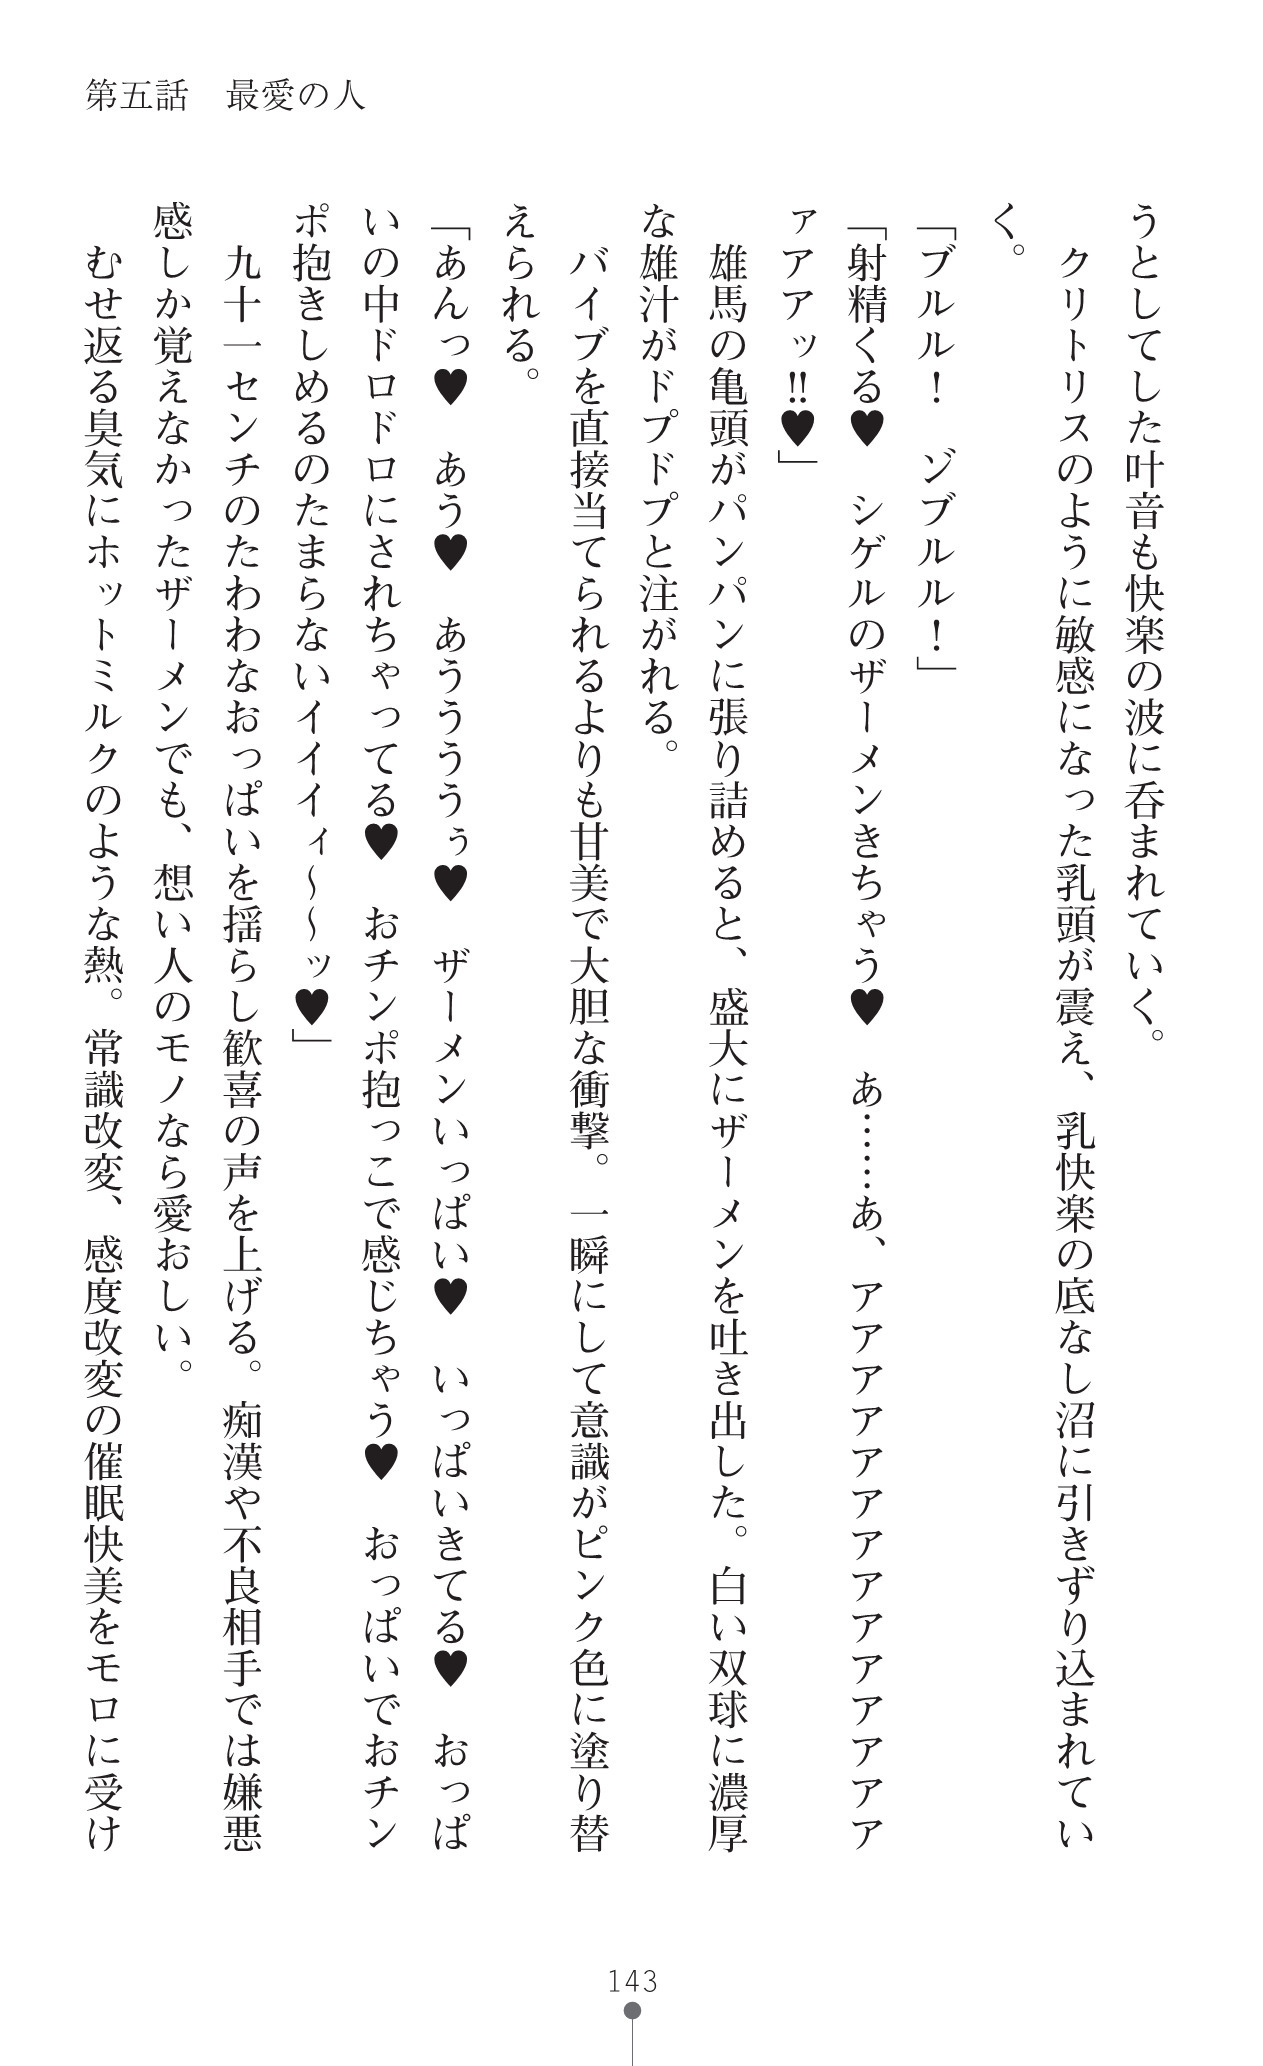 第五話　最愛の人
うとしてした叶音も快楽の波に呑まれていく。
　クリトリスのように敏感になった乳頭が震え、乳快楽の底なし沼に引きずり込まれてい
く。
「ブルル！　ゾブルル！」
「射精くる♥　シゲルのザーメンきちゃう♥　あ……あ、アアアアアアアアアアアアアア
ァアアッ‼♥」
　雄馬の亀頭がパンパンに張り詰めると、盛大にザーメンを吐き出した。白い双球に濃厚
な雄汁がドプドプと注がれる。
　バイブを直接当てられるよりも甘美で大胆な衝撃。一瞬にして意識がピンク色に塗り替
えられる。
「あんっ♥　あう♥　あうううぅ♥　ザーメンいっぱい♥　いっぱいきてる♥　おっぱ
いの中ドロドロにされちゃってる♥　おチンポ抱っこで感じちゃう♥　おっぱいでおチン
ポ抱きしめるのたまらないイイイィ～～ッ♥」
　九十一センチのたわわなおっぱいを揺らし歓喜の声を上げる。痴漢や不良相手では嫌悪
感しか覚えなかったザーメンでも、想い人のモノなら愛おしい。
　むせ返る臭気にホットミルクのような熱。常識改変、感度改変の催眠快美をモロに受け
143